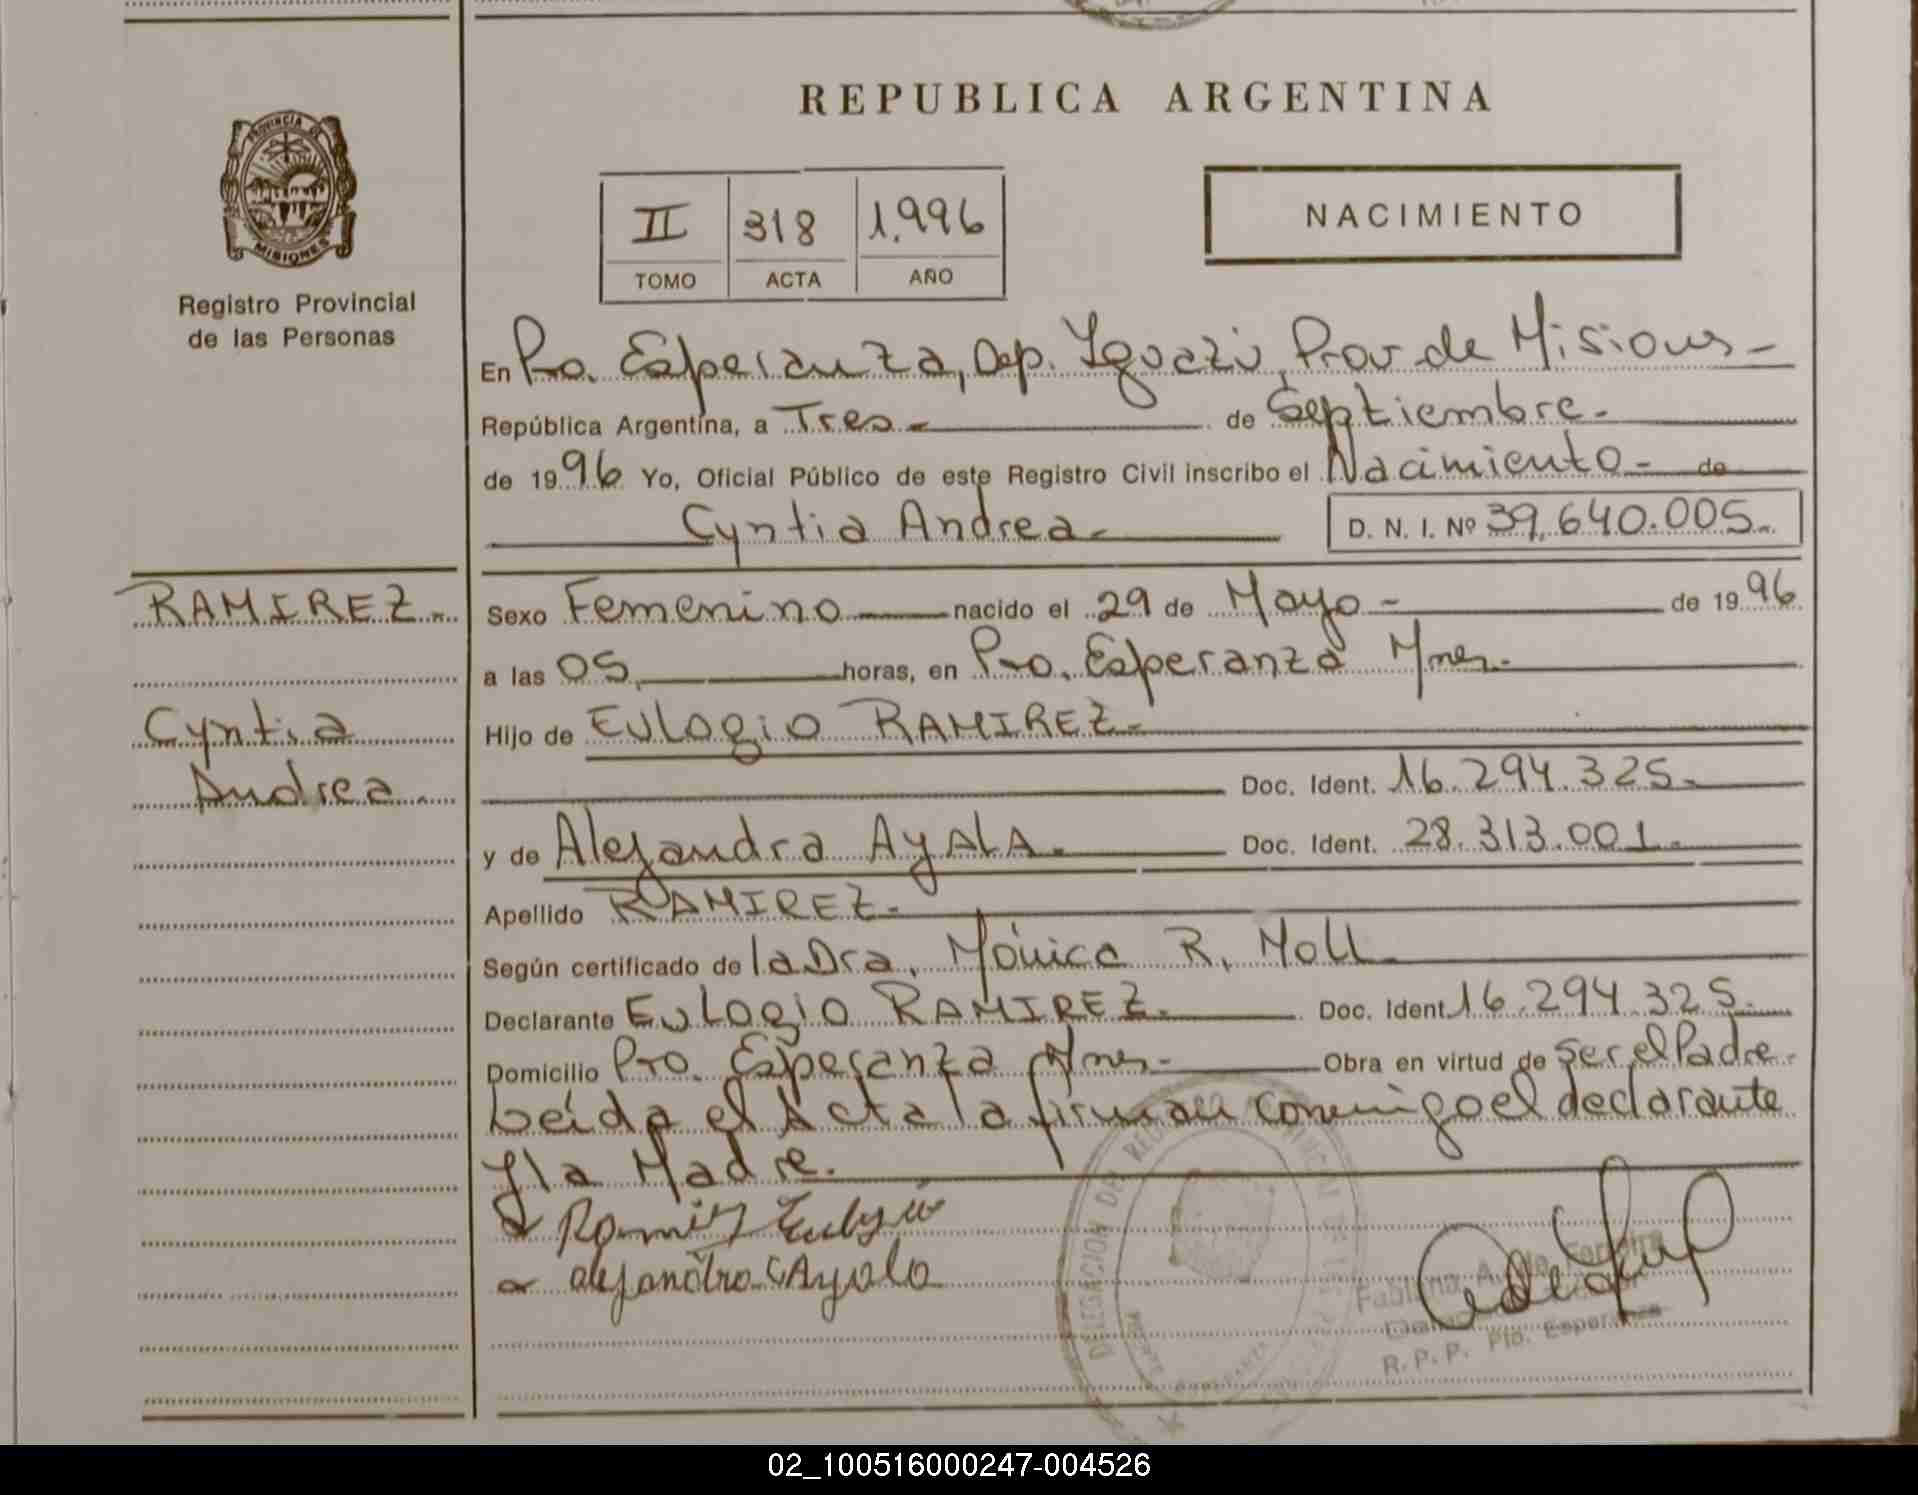 REPUBLICA ARGENTINA
PROVINCIA DE
MISIONES
Registro Provincial
de las Personas
II 318 1.996
TOMO ACTA AÑO
NACIMIENTO
En Pto. Esperanza, Dep. Iguazú, Prov de Misiones -
República Argentina, a Tres - de Septiembre -
de 1996 Yo, Oficial Público de este Registro Civil inscribo el Nacimiento - de
Cyntia Andrea - D. N. I. Nº 39.640.005.-
RAMIREZ -
Cyntia
Andrea -
Sexo Femenino nacido el 29 de Mayo - de 1996
a las 05 horas, en Pto. Esperanza Mnes -
Hijo de Eulogio RAMIREZ -
Doc. Ident. 16.294.325 -
y de Alejandra AyALA - Doc. Ident. 28.313.001 -
Apellido RAMIREZ -
Según certificado de la Dra. Mónica R. Moll
Declarante Eulogio RAMIREZ - Doc. Ident. 16.294.325 -
Domicilio Pto. Esperanza Mnes - Obra en virtud de Ser el Padre -
Leída el Acta la firman conmigo el declarante
y la Madre.
Ramirez Eulogio
alejandra Ayala
DELEGACION DEL REGISTRO PROVINCIAL
R. P. P. Pto. Esperanza
02_100516000247-004526